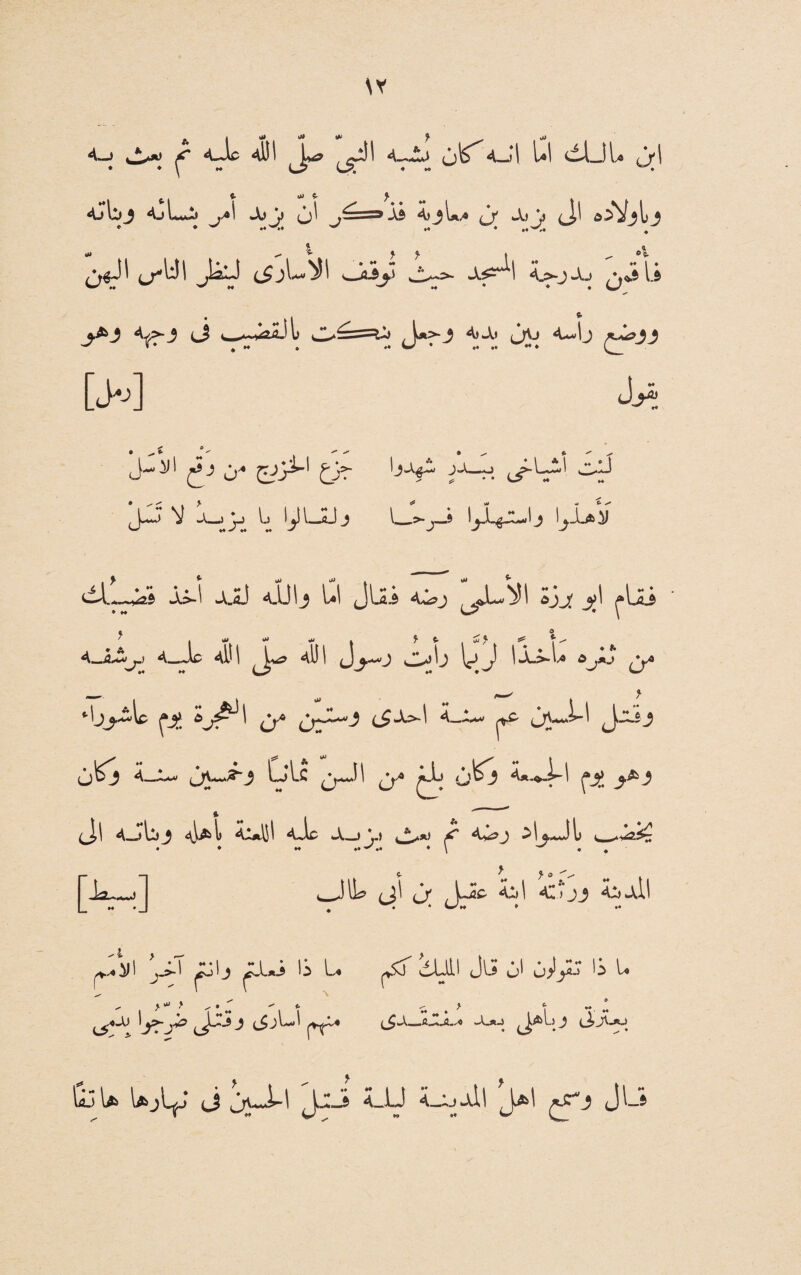 ١٢
ابن مالك اما انه كان يُشبه النبيَّ صلّى اللّه عليه ثم بعث به
وباولاده الى يزيد بن معاوية فذُكر أنّ يزيد أمر بنسائه وبناته
فأُقِمْنَ بدرجة المسجد حيثُ تُوقَفُ الأسارَى لينظر الناس اليهنّ
ووضع رأسه بين يديه وجعل ينكت بالقضيب فى وجهه وهو
يقول [رمل]
لَيْتَ أشياخى ببدرٍ شهدوا جَزَعَ الخزرجِ من وَقْعِ الأسَلْ
لأَهَلّوا واستهلّوا فرحًا ولقالوا يا يزيدُ لا تَسَلْ
فقام ابو برزة الأسلمىّ رضه فقال اما واللّه لقد أخذ قضيبُك
من ثغره مَأْخَذًا لَرُبّما رأيتُ رسول اللّه صلّى اللّه عليه يرشفُه
وقُتل الحسين عم سنة احدى وستّين من الهجرة يوم عاشوراء
وهو يوم الجمعة وكان بلغ من السنّ ثمانيا وخمسين سنة وكان
يخضب بالسواد رضه ثم بعث يزيد عليه اللعنة بأهله وبناته الى
المدينة ورَثَتْهُ ابنة عقيل بن أبى طالب [بسيط]
ما ذا تقولون ان قال المليكُ لكم ما ذا فعلتم وانتم آخرُ الأممِ
بعترتى وبأهلى بعد مُفتقَدى منهم أسارى وقَتْلَى ضُرِّجوا بدمِى
قال وسمع اهلُ المدينة ليلة قُتِلَ الحسينُ فى نهارها هاتفًا